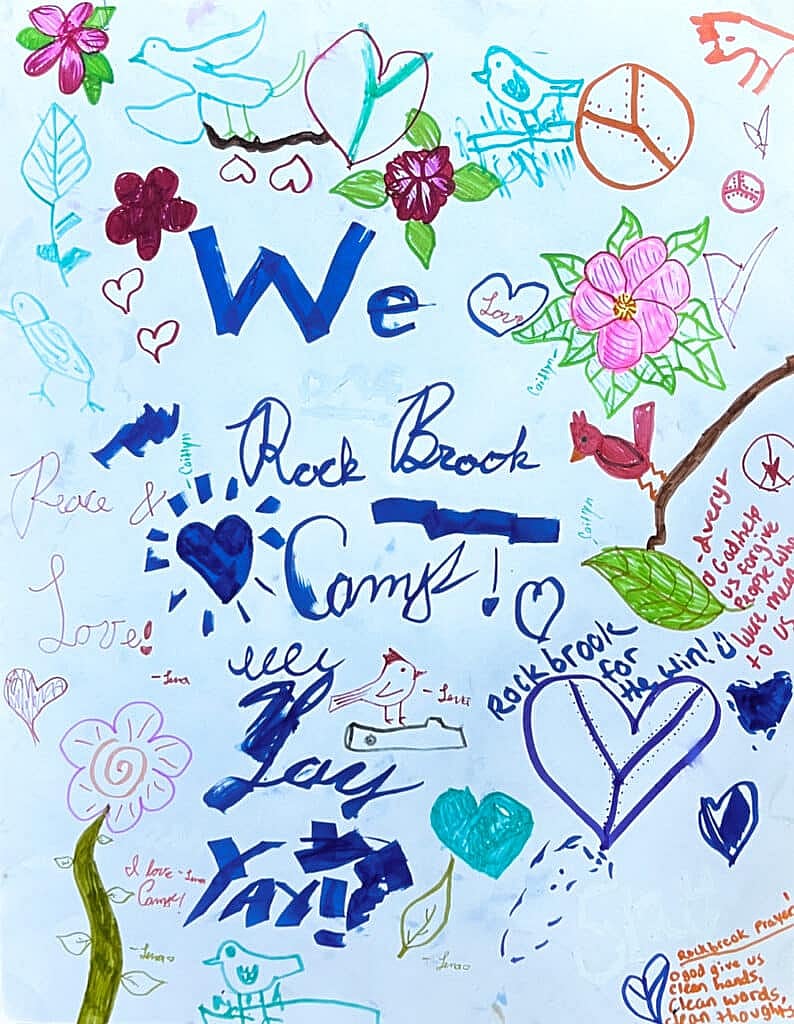 We
Love
Caitlyn
Rock Brook
Caitlyn
Camp!
Caitlyn
Peace &
Love!
-Lena
-Avery
O God help
us forgive
People Who
Were mean
to us
-Lena
Rockbrook
for
the win!
Yay
Yay!
I love -Lena
Camp!
-Lena
-Lena
Rockbrook Prayer
O god give us
clean hands,
clean words,
clean thoughts